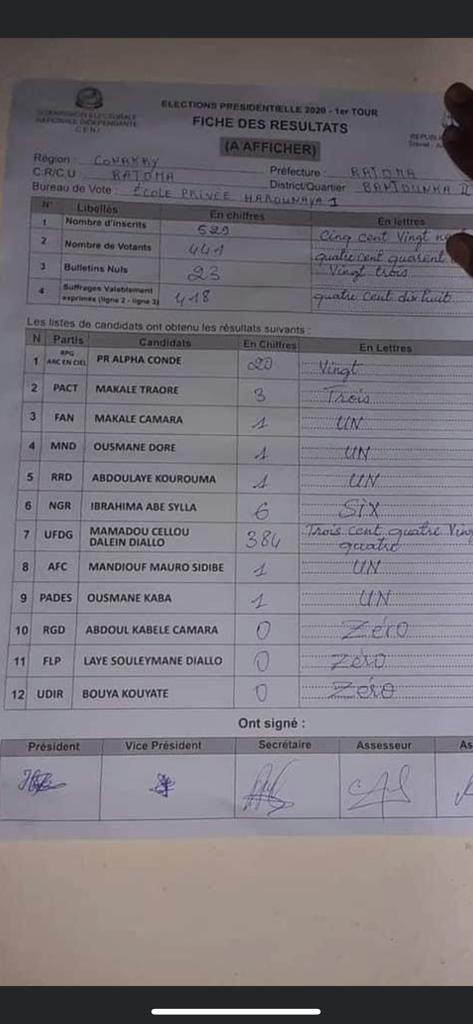 COMMISSION ELECTORALE
NATIONALE INDEPENDANTE
C E N I
ELECTIONS PRESIDENTIELLE 2020 - 1er TOUR
FICHE DES RESULTATS
(A AFFICHER)
Région : CONAKRY
Préfecture : RATOMA
C.R/C.U RATOMA
District/Quartier BANTOUNKA II
Bureau de Vote : ÉCOLE PRIVÉE HAROUNAYA 1
N° Libellés En chiffres En lettres
1 Nombre d'inscrits 529 Cinq cent Vingt
2 Nombre de Votants 441 quatre cent quarent
3 Bulletins Nuls 23 Vingt trois
4 Suffrages Valablement exprimés (ligne 2 - ligne 3) 418 quatre cent dix huit
Les listes de candidats ont obtenu les résultats suivants :
N Partis Candidats En Chiffres En Lettres
1 RPG ARC EN CIEL PR ALPHA CONDE 20 Vingt
2 PACT MAKALE TRAORE 3 Trois
3 FAN MAKALE CAMARA 1 UN
4 MND OUSMANE DORE 1 UN
5 RRD ABDOULAYE KOUROUMA 1 UN
6 NGR IBRAHIMA ABE SYLLA 6 SIX
7 UFDG MAMADOU CELLOU DALEIN DIALLO 384 Trois cent quatre Ving quatre
8 AFC MANDIOUF MAURO SIDIBE 1 UN
9 PADES OUSMANE KABA 1 UN
10 RGD ABDOUL KABELE CAMARA 0 Zéro
11 FLP LAYE SOULEYMANE DIALLO 0 zéro
12 UDIR BOUYA KOUYATE 0 Zéro
Ont signé :
Président Vice Président Secrétaire Assesseur As